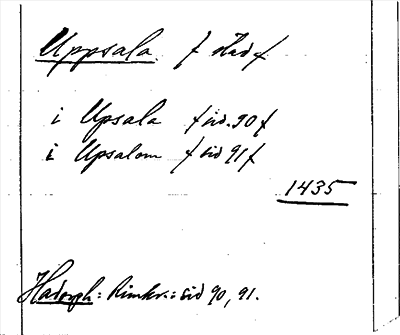 Uppsala / stad /
i Upsala / sid. 90 /
i Upsalom / sid 91 /
1435
Hadorph: Rimkr.: sid 90, 91.